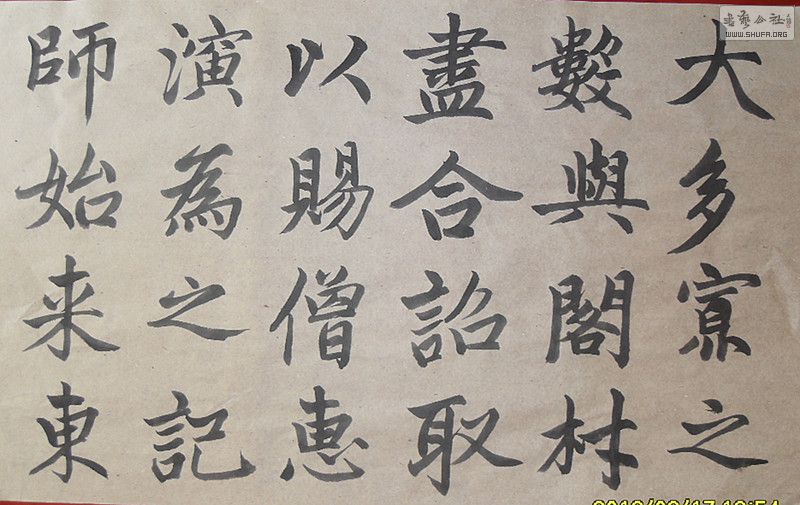 大多寡之
數與閣材
盡合詔取
以賜僧惠
演為之記
師始来東
書藝公社
WWW.SHUFA.ORG